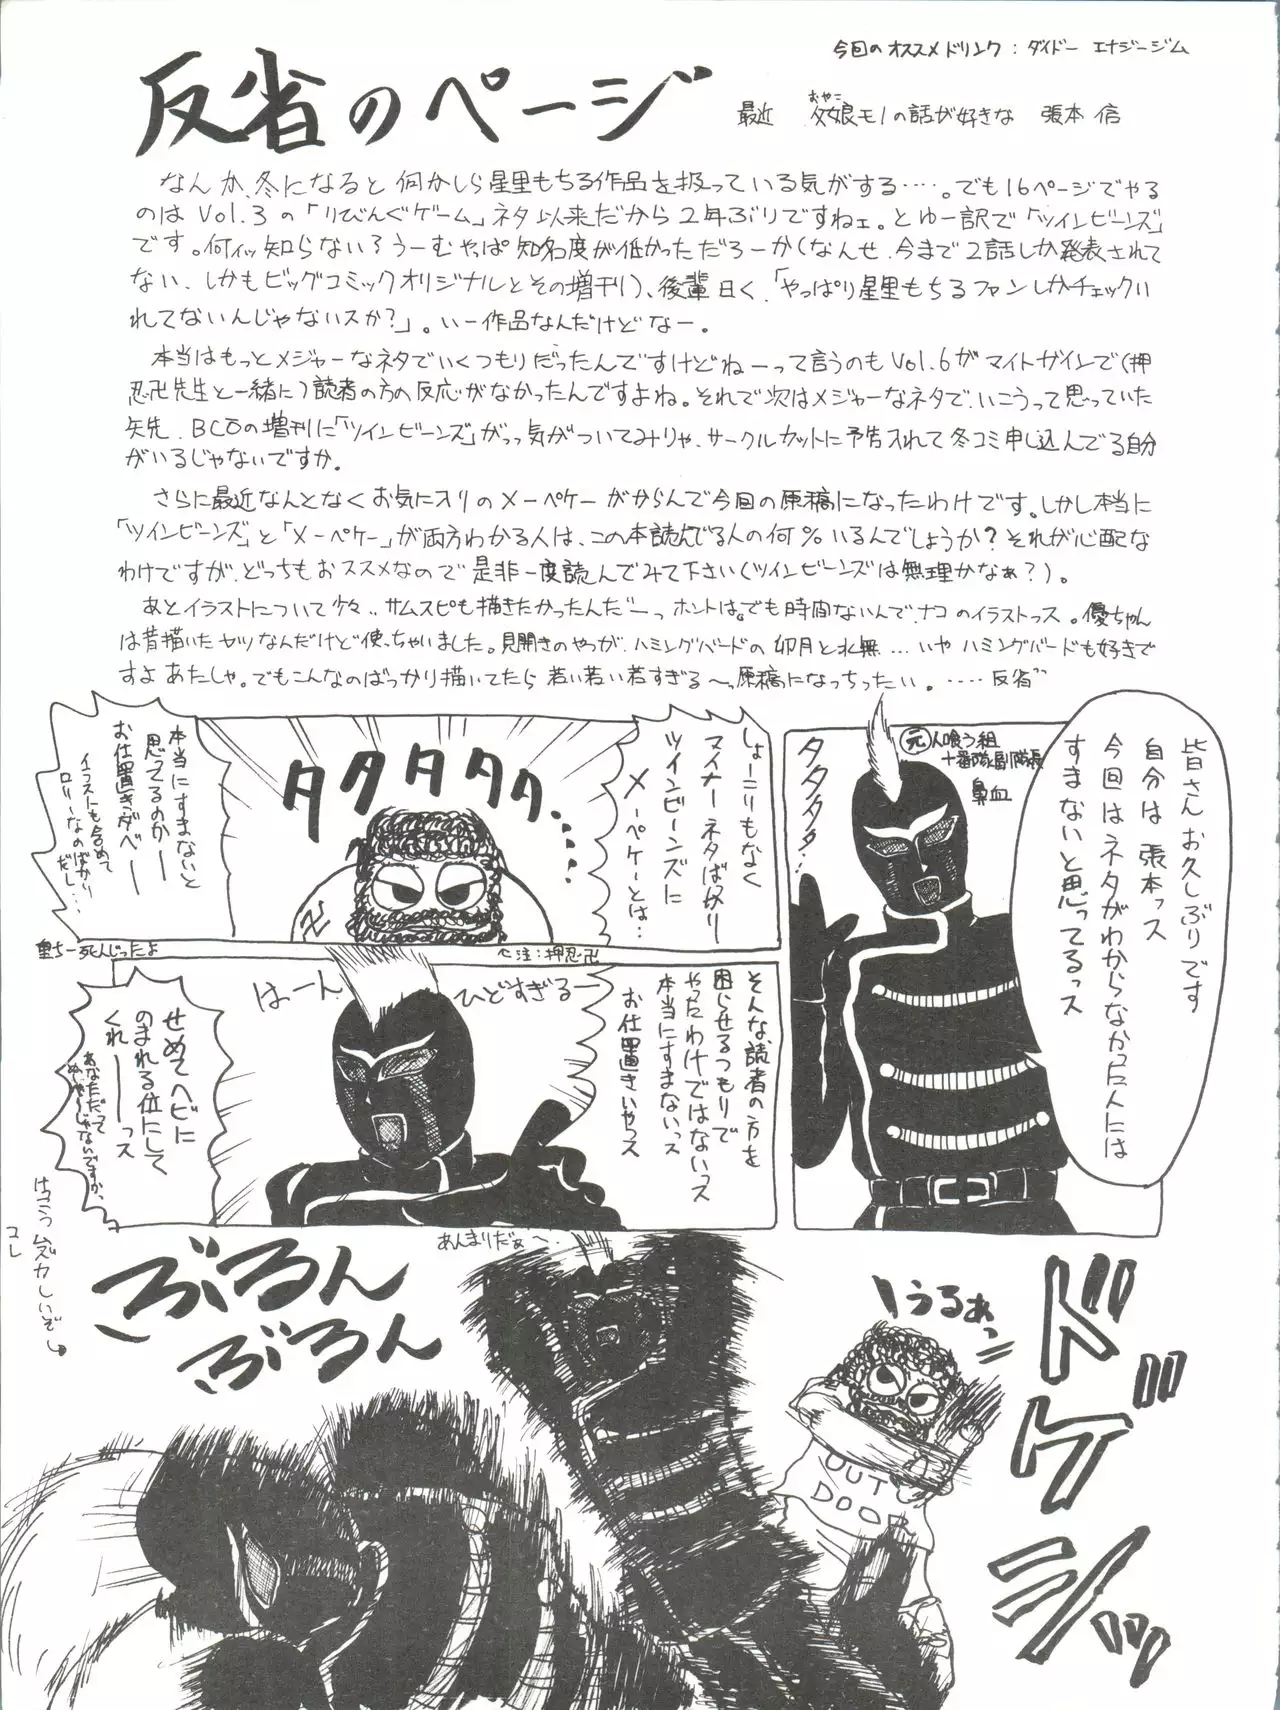 今回のオススメドリンク：ダイドー エナジージム
反省のページ
最近 父娘モノの話が好きな 張本 信
おやこ
なんか、冬になると何かしら星里もちる作品を扱っている気がする……。でも16ページでやる
のはVol.3の「りびんぐゲーム」ネタ以来だから2年ぶりですねェ。とゆー訳で「ツインビーンズ」
です。何ィッ知らない？うーむやっぱ知名度が低かっただろーか(なんせ、今まで2話しか発表されて
ない、しかもビッグコミックオリジナルとその増刊)、後輩曰く、「やっぱり星里もちるファンしかチェックい
れてないんじゃないスか？」。いー作品なんだけどなー。
本当はもっとメジャーなネタでいくつもりだったんですけどねーって言うのもVol.6がマイトガインで(押
忍卍先生と一緒に)読者の方の反応がなかったんですよね。それで次はメジャーなネタで、いこうって思っていた
矢先、BCOの増刊に「ツインビーンズ」がっっ気がついてみりゃ、サークルカットに予告入れて冬コミ申し込んでる自分
がいるじゃないですか。
さらに最近なんとなくお気に入りのメーペケーがからんで今回の原稿になったわけです。しかし本当に
「ツインビーンズ」と「メーペケー」が両方わかる人は、この本読んでる人の何%いるんでしょうか？それが心配な
わけですが、どっちもおススメなので是非一度読んでみて下さい(ツインビーンズは無理かなぁ？)。
あとイラストについて少々、サムスピも描きたかったんだーっホントは。でも時間ないんで、ナコのイラストっス。優ちゃん
は昔描いたヤツなんだけど使っちゃいました。見開きのやつが、ハミングバードの卯月と水無…いやハミングバードも好きで
すよあたしゃ。でもこんなのばっかり描いてたら若い若い若すぎる〜っ原稿になっちったい。……反省
皆さんお久しぶりです
自分は張本っス
今回はネタがわからなかった人には
すまないと思ってるっス
元人喰う組
十番隊副隊長
鼻血
タタタタ…
しょーこりもなく
マイナーネタばかり
ツインビーンズに
メーペケーとは…
タタタタタ……
卍
注：押忍卍
本当にすまないと
思ってるのかーー
お仕置きダベーー
イラストも含めて
ロリーなのばかり
だし…
そんな、読者の方を
困らせるつもりで
やったわけではないっス
本当にすまないっス
お仕置きいやっス
ひどすぎるー
はーん
せめてヘビに
のまれる位にして
くれーーーっス
あなただって
めーペケーじゃないですか、
けっこうムズカしいぞ
コレ
ドゲシッ
うるあっ
OUT
DOO
あんまりだぁ〜
ぶるん
ぶるん